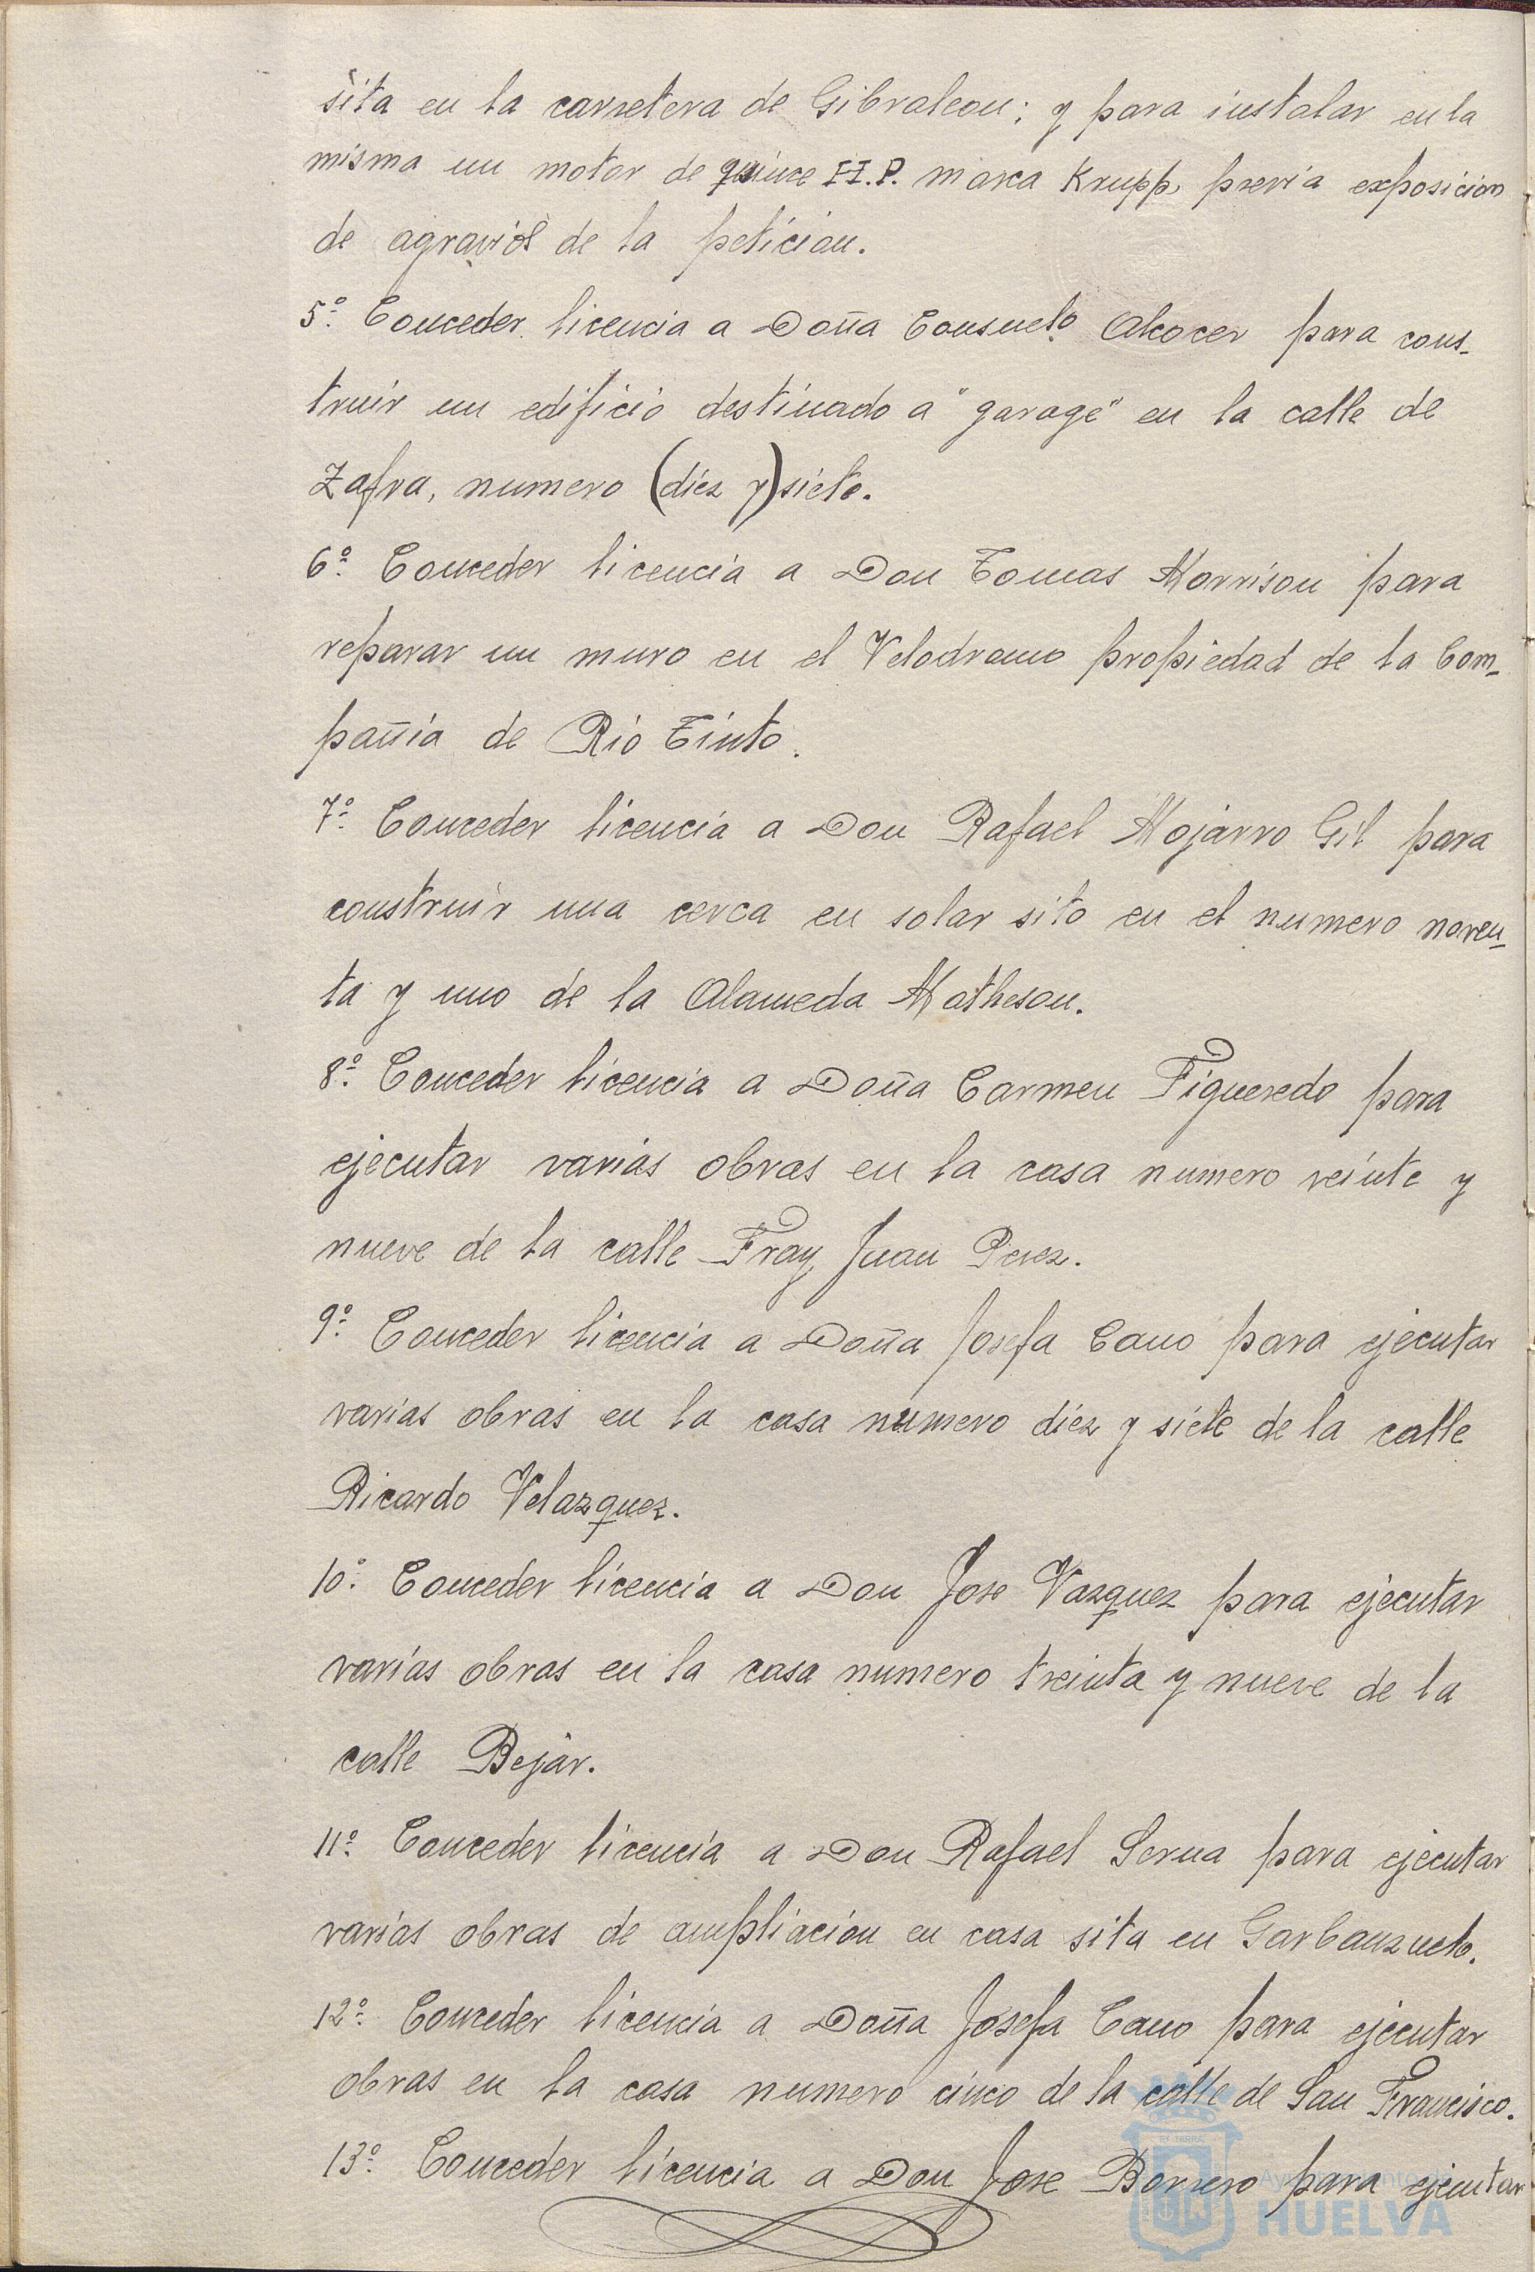 sita en la carretera de Gibraleon; y para instalar en la
misma un motor de quince H.P. marca Krupp, previa exposicion
de agravios de la peticion.
5º. Conceder licencia a Doña Consuelo Alcocer para cons-
truir un edificio destinado a "garage" en la calle de
Zafra, numero (diez y) siete.
6º. Conceder licencia a Don Tomas Morrison para
reparar un muro en el Velodromo propiedad de la Com-
pañia de Rio Tinto.
7º. Conceder licencia a Don Rafael Mojarro Gil para
construir una cerca en solar sito en el numero noven-
ta y uno de la Alameda Matheson.
8º. Conceder licencia a Doña Carmen Figueredo para
ejecutar varias obras en la casa numero veinte y
nueve de la calle Fray Juan Perez.
9º. Conceder licencia a Doña Josefa Cano para ejecutar
varias obras en la casa numero diez y siete de la calle
Ricardo Velazquez.
10º. Conceder licencia a Don Jose Vazquez para ejecutar
varias obras en la casa numero treinta y nueve de la
calle Bejar.
11º. Conceder licencia a Don Rafael Serna para ejecutar
varias obras de ampliacion en casa sita en Garbanzuelo.
12º. Conceder licencia a Doña Josefa Cano para ejecutar
obras en la casa numero cinco de la calle de San Francisco.
13º. Conceder licencia a Don Jose Borrero para ejecutar
Ayuntamiento de
HUELVA